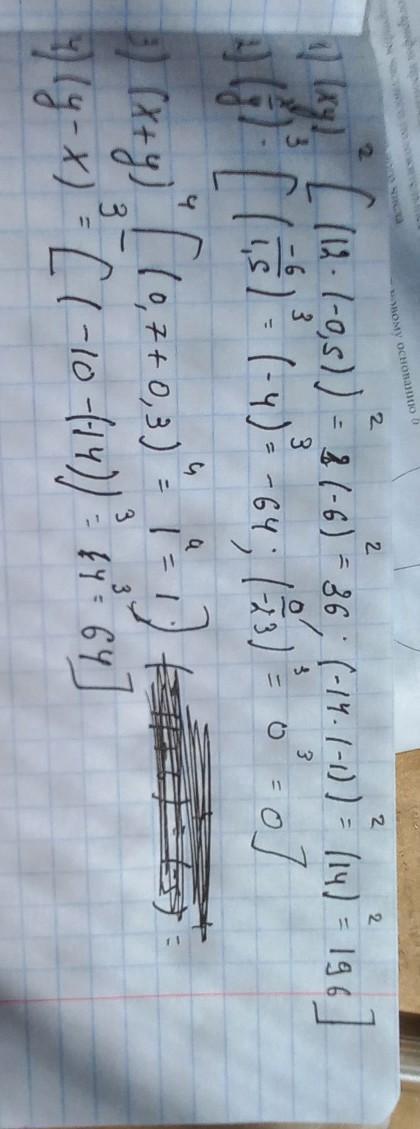 1) (xy)² [(12·(-0,5))² = (-6)² = 36; (-14·(-1))² = (14)² = 196]
2) (x/y)³ · [(-6/1,5)³ = (-4)³ = -64; (0/-23)³ = 0³ = 0]
3) (x+y)⁴ [(0,7+0,3)⁴ = 1⁴ = 1;] =
4) (y-x)³ = [(-10-(-14))³ = 4³ = 64]
новому основанию b